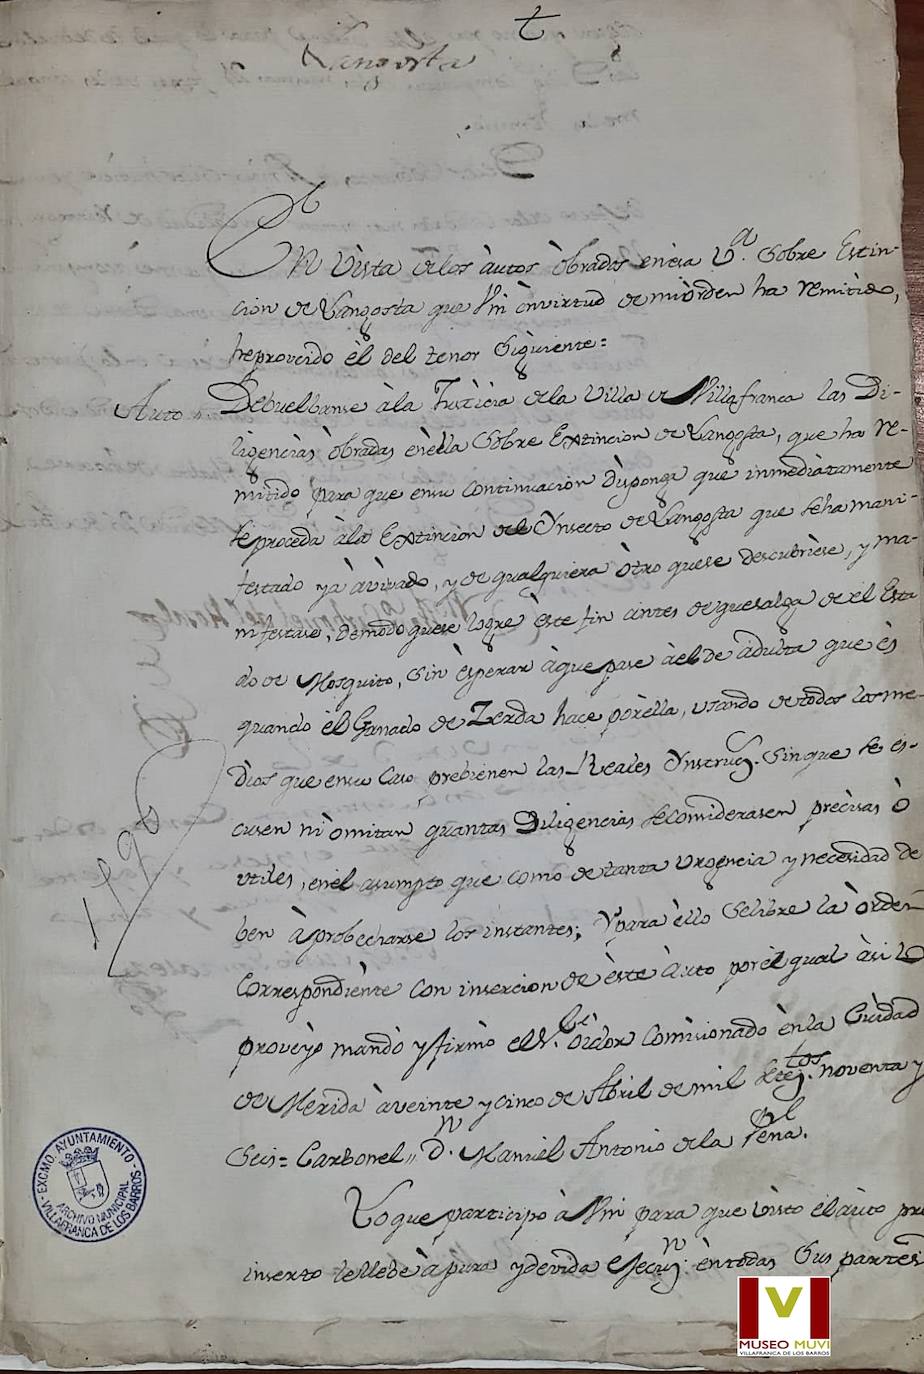 t
Langosta
En vista de los àutos òbrados en esa V.a sobre Estin-
cion de Langosta que Vm en virtud de mi òrden ha remitido,
he proveido èl del tenor siguiente=
Auto
Debuelbanse à la Justicia de la Villa de Villafranca las Di-
ligencias òbradas en èlla sobre Extincion de Langosta, que ha re-
mitido para que en su continuacion disponga que inmediatamente
se proceda à la Extincion del Ynsecto de Langosta que se ha mani-
festado ya àvivado, y de qualquiera òtro que se descubriese, y ma-
nifestase, de modo que se logre èste fin àntes de que salga de el Esta
do de Mosquito, sin èsperar à que pase àel de adulta que ès
quando èl Ganado de Zerda hace por èlla, usando de todos los me-
dios que en su caso prebienen las Reales Ynstrucs. sin que se es-
cusen ni omitan quantas Diligencias se considerasen precisas ò
utiles, en èl asumpto que como de tanta urgencia y necesidad de
ben àprobecharse los instantes; Y para èllo se libre la òrden
Correspondiente con insercion de èste Auto por èl qual àsi lo
proveyò mandò y firmò el Sr. òidor Comisionado èn la Ciudad
de Merida à veinte y cinco de Abril de mil setez.tos noventa y
Seis= Carbonel,, d.n Manuel Antonio de la Peña.
Lo que participo à Vm para que visto èl àuto pre
inserto le llebe à pura y devida ejecuz.n èn todas sus partes
1796
EXCMO. AYUNTAMIENTO
ARCHIVO MUNICIPAL
VILLAFRANCA DE LOS BARROS
MUSEO MUVI
VILLAFRANCA DE LOS BARROS